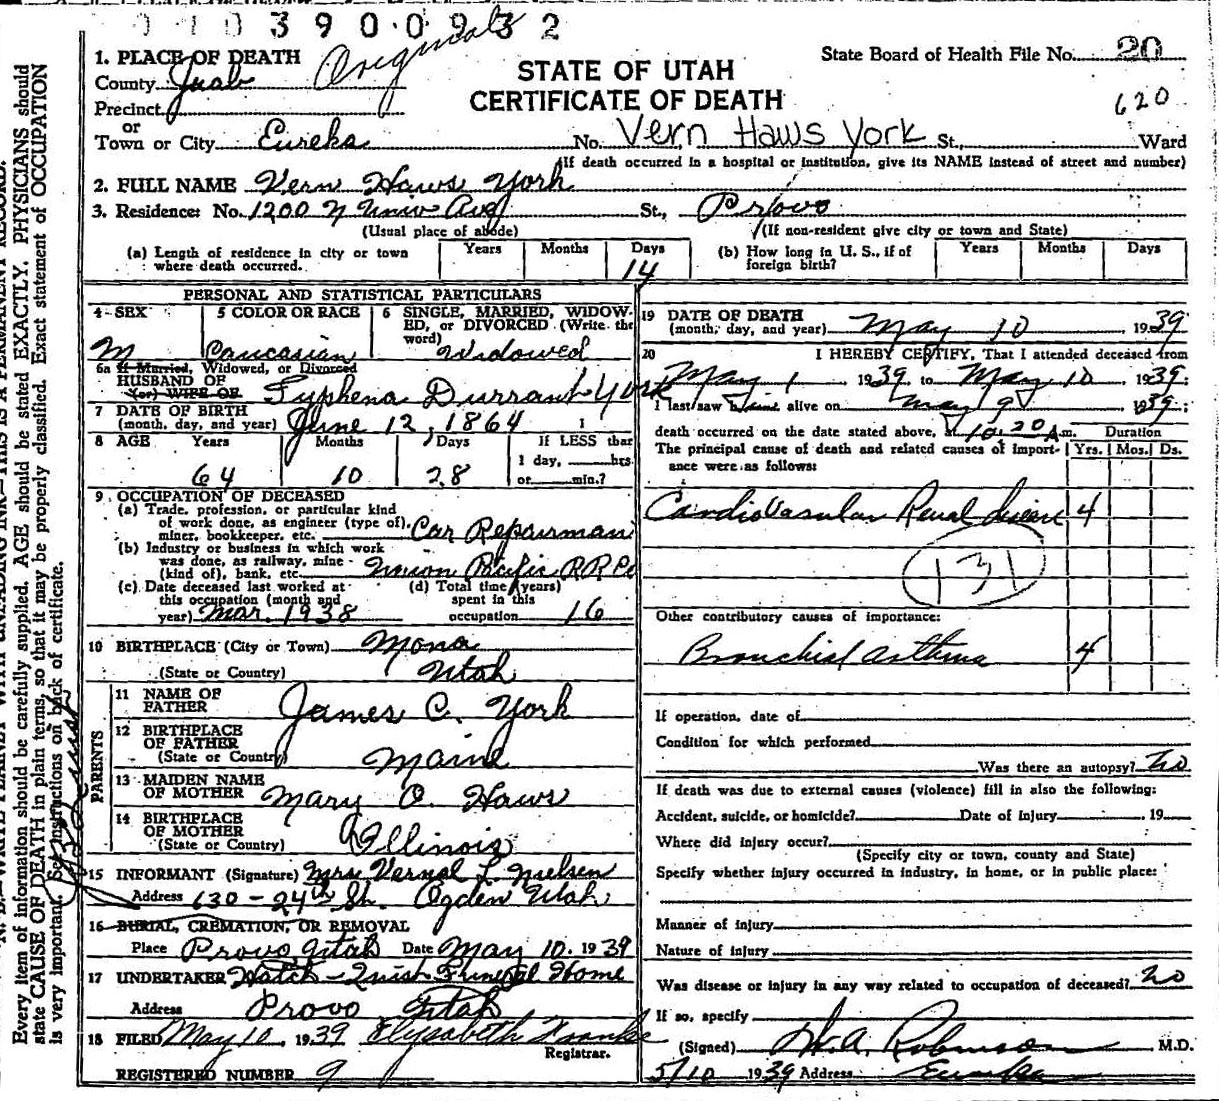 0 1 0 3 9 0 0 9 3 2
Original
STATE OF UTAH
CERTIFICATE OF DEATH
State Board of Health File No. 20
620
1. PLACE OF DEATH
County Juab
Precinct
or
Town or City Eureka No. Vern Haws York St., Ward
(If death occurred in a hospital or institution, give its NAME instead of street and number)
2. FULL NAME Vern Haws York
3. Residence: No. 1200 N Univ Ave St., Provo
(Usual place of abode) (If non-resident give city or town and State)
(a) Length of residence in city or town where death occurred. Years Months Days 14
(b) How long in U. S., if of foreign birth? Years Months Days
PERSONAL AND STATISTICAL PARTICULARS
4 SEX M
5 COLOR OR RACE Caucasian
6 SINGLE, MARRIED, WIDOWED, or DIVORCED (Write the word) Widowed
6a If Married, Widowed, or Divorced
HUSBAND OF
(or) WIFE OF Syphena Durrant York
7 DATE OF BIRTH
(month, day, and year) June 12, 1864
8 AGE Years 64 Months 10 Days 28 If LESS than 1 day, hrs. or min.?
9 OCCUPATION OF DECEASED
(a) Trade, profession, or particular kind
of work done, as engineer (type of),
miner, bookkeeper, etc. Car Repairman
(b) Industry or business in which work
was done, as railway, mine
(kind of), bank, etc. Union Pacific RR Co
(c) Date deceased last worked at
this occupation (month and
year) Mar. 1938
(d) Total time (years)
spent in this
occupation 16
10 BIRTHPLACE (City or Town) Mona
(State or Country) Utah
PARENTS
11 NAME OF
FATHER James C. York
12 BIRTHPLACE
OF FATHER
(State or Country) Maine
13 MAIDEN NAME
OF MOTHER Mary O. Haws
14 BIRTHPLACE
OF MOTHER
(State or Country) Illinois
15 INFORMANT (Signature) Mrs Vernal L. Nielsen
Address 630 - 24th St. Ogden Utah
16 BURIAL, CREMATION, OR REMOVAL
Place Provo, Utah Date May 10, 1939
17 UNDERTAKER Funeral Home
Address Provo Utah
18 FILED May 10, 1939 Elysabeth Franke
Registrar.
REGISTERED NUMBER 9
19 DATE OF DEATH
(month, day, and year) May 10 1939
20 I HEREBY CERTIFY, That I attended deceased from
May 1 1939 to May 10 1939;
I last saw him alive on May 9 1939;
death occurred on the date stated above, at 10:20 A.m. Duration
The principal cause of death and related causes of importance were as follows: Yrs. Mos. Ds.
Cardiovasular Renal disease 4
131
Other contributory causes of importance:
Bronchial asthma 4
If operation, date of
Condition for which performed
Was there an autopsy? no
If death was due to external causes (violence) fill in also the following:
Accident, suicide, or homicide? Date of injury , 19
Where did injury occur?
(Specify city or town, county and State)
Specify whether injury occurred in industry, in home, or in public place:
Manner of injury
Nature of injury
Was disease or injury in any way related to occupation of deceased? no
If so, specify
(Signed) A. Robinson M.D.
5/10 1939 Address Eureka
Every item of information should be carefully supplied. AGE should be stated EXACTLY. PHYSICIANS should
state CAUSE OF DEATH in plain terms, so that it may be properly classified. Exact statement of OCCUPATION
is very important. See instructions on back of certificate.